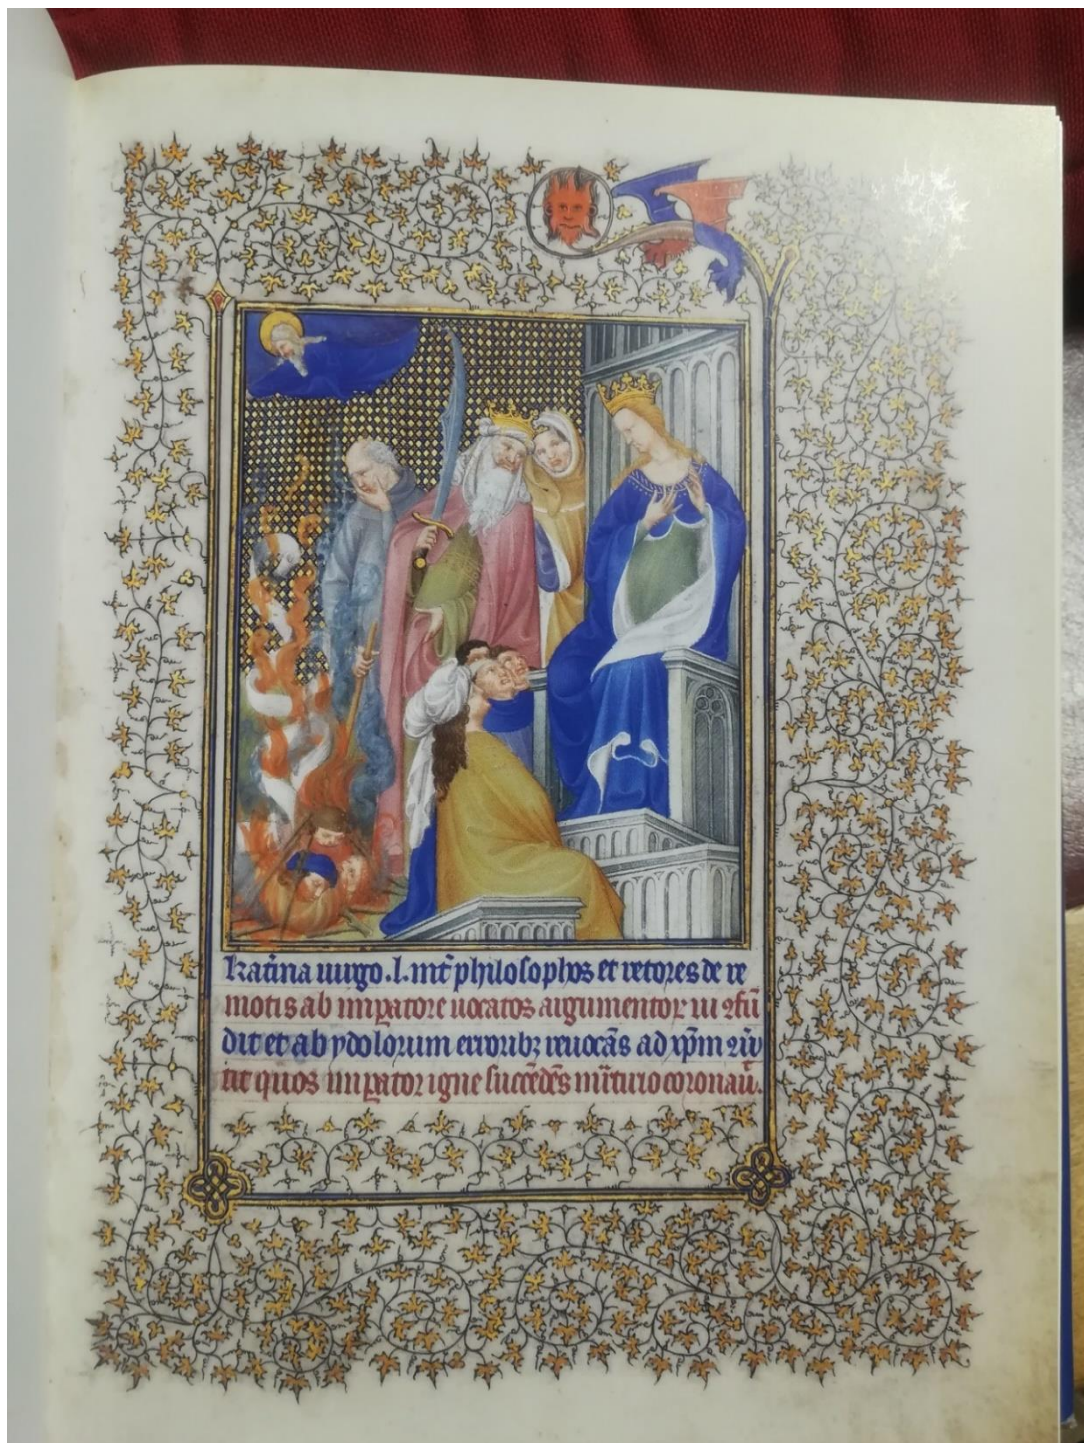 katina uirgo .l. mt̄ philosophos et retores de re
motis ab impatore uocatos argumentor̄ ui ꝯfu
dit et ab ydolorum erroribꝫ reuocās ad xp̄m ꝯu̅
tit quos impator igne succēdēs m̄tirio coronau̅.